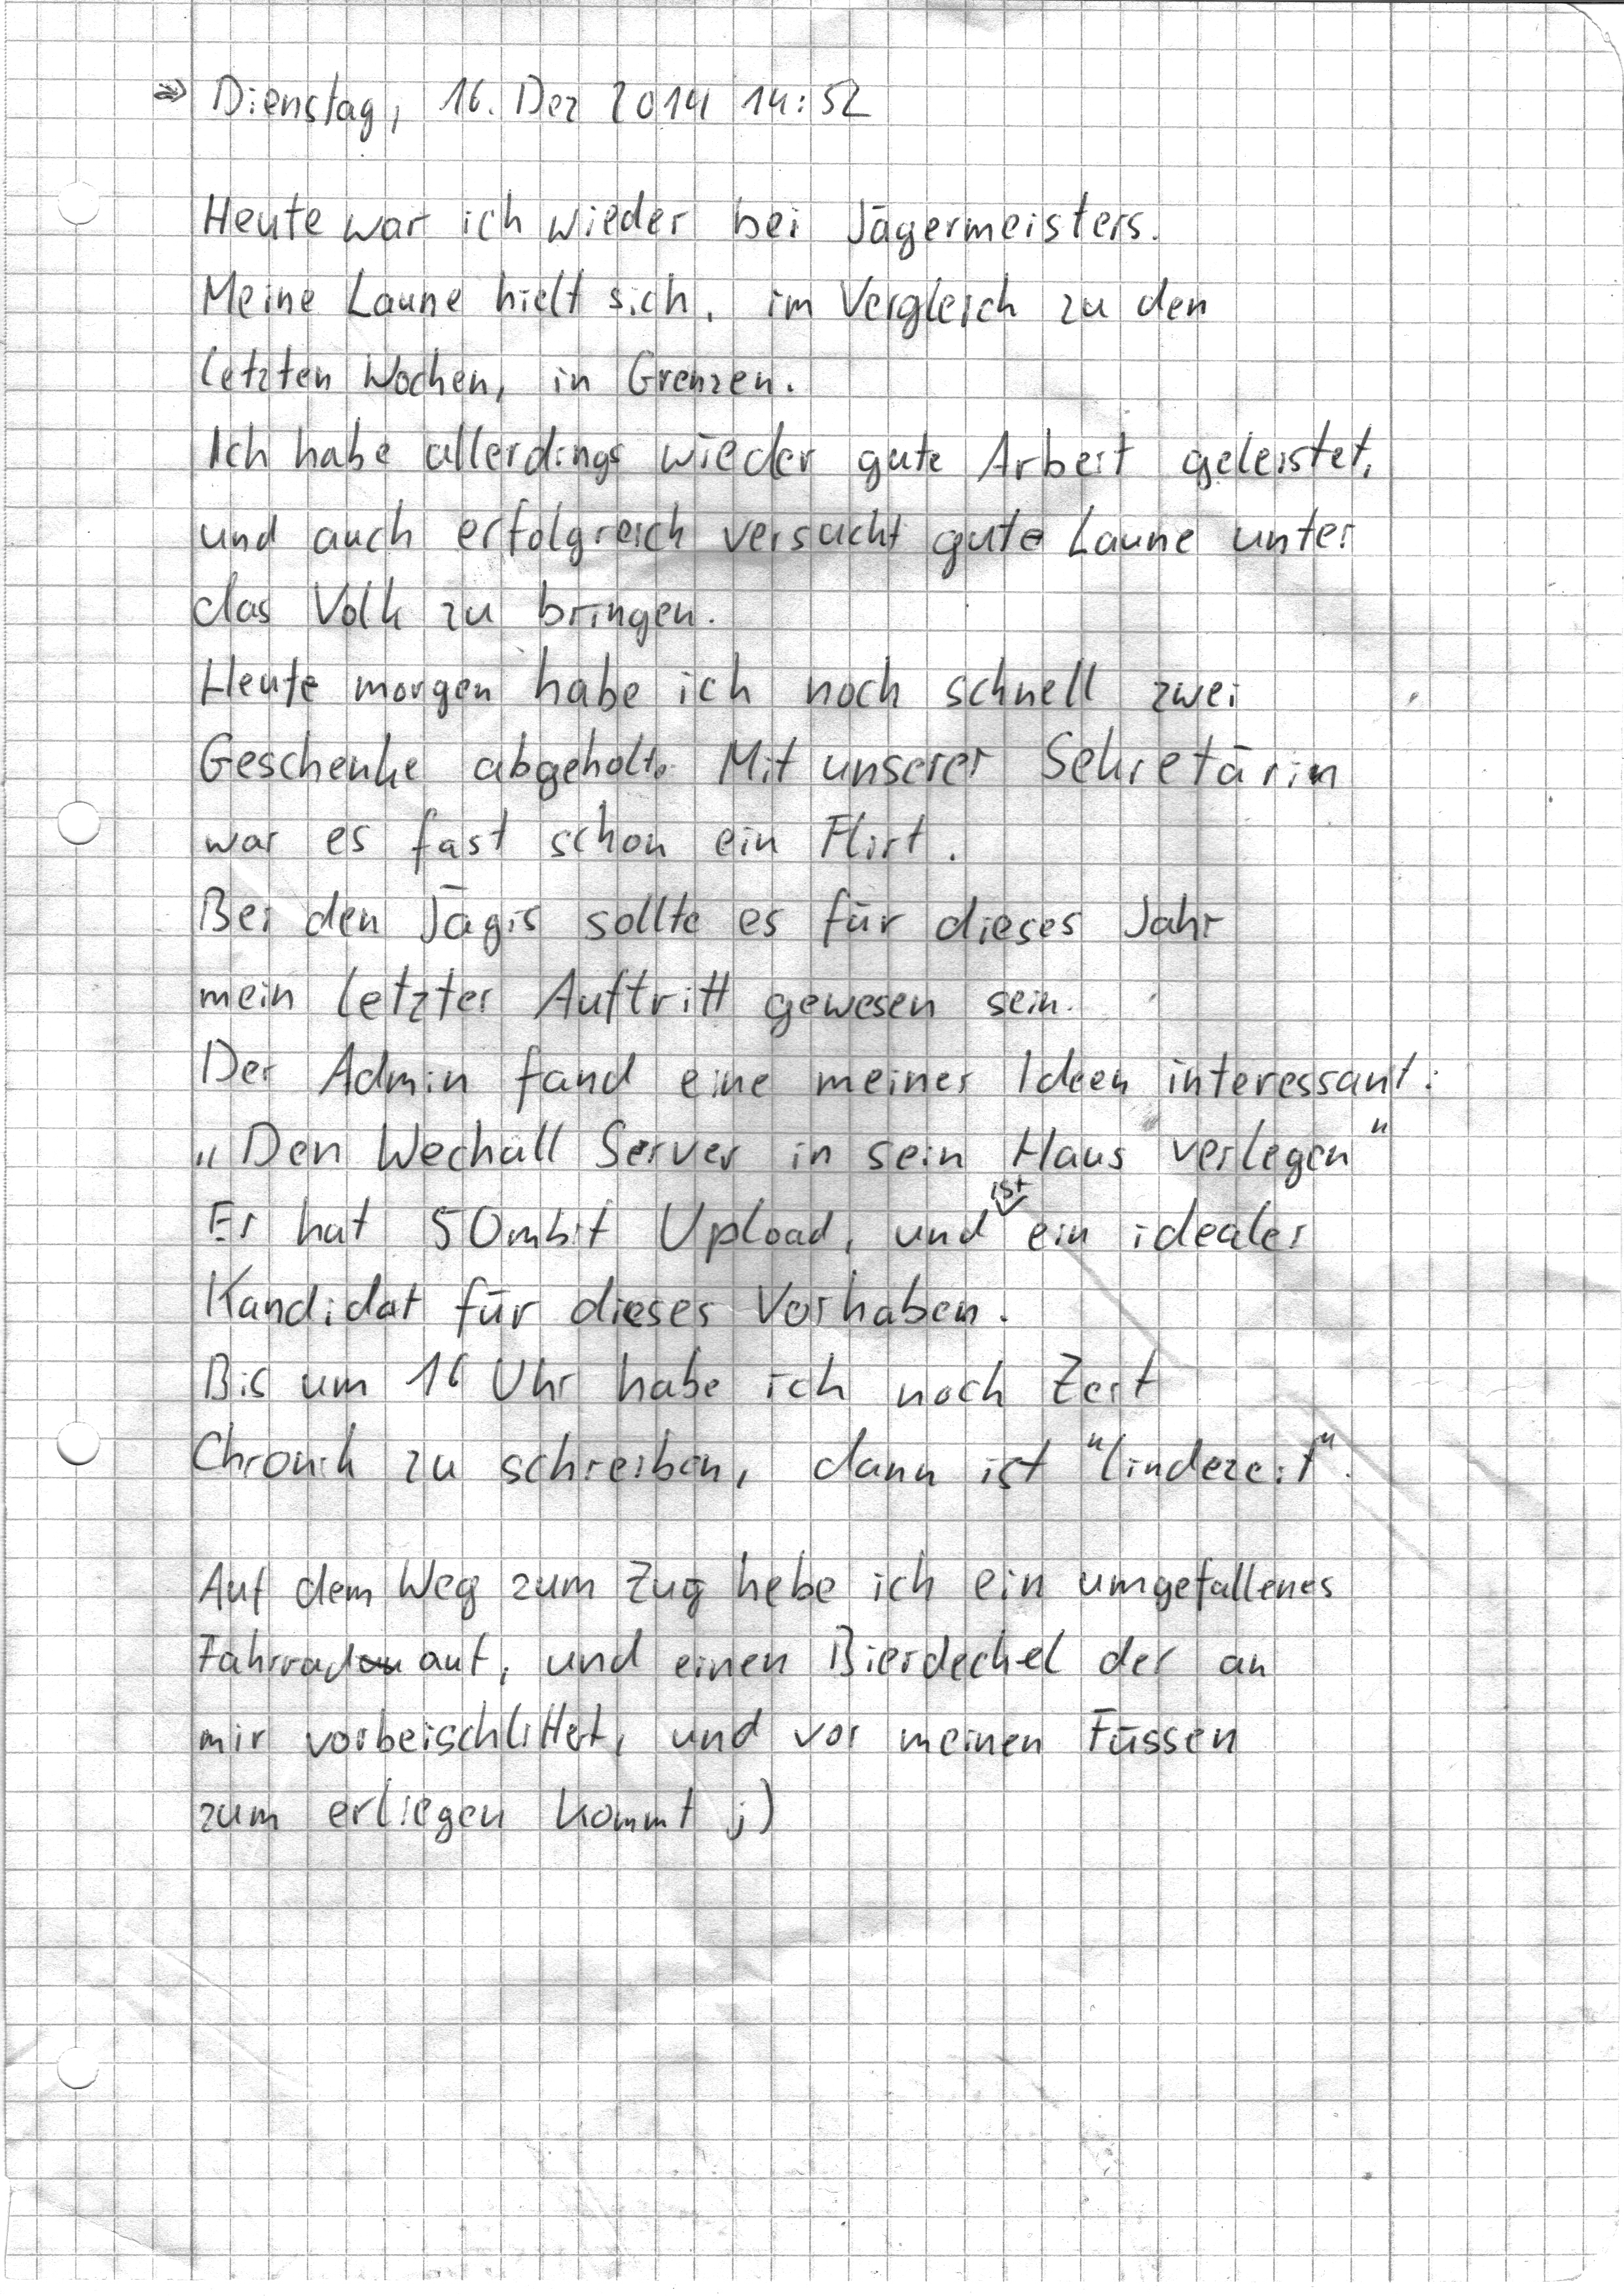 ⇒ Dienstag, 16. Dez 2014 14:52
Heute war ich wieder bei Jägermeisters.
Meine Laune hielt sich, im Vergleich zu den
letzten Wochen, in Grenzen.
Ich habe allerdings wieder gute Arbeit geleistet,
und auch erfolgreich versucht gute Laune unter
das Volk zu bringen.
Heute morgen habe ich noch schnell zwei
Geschenke abgeholt. Mit unserer Sekretärin
war es fast schon ein Flirt.
Bei den Jägis sollte es für dieses Jahr
mein letzter Auftritt gewesen sein.
Der Admin fand eine meiner Ideen interessant:
„Den Wechall Server in sein Haus verlegen"
Er hat 50mbit Upload, und ist ein idealer
Kandidat für dieses Vorhaben.
Bis um 16 Uhr habe ich noch Zeit
Chronik zu schreiben, dann ist "lindezeit".
Auf dem Weg zum Zug hebe ich ein umgefallenes
Fahrrad auf, und einen Bierdeckel der an
mir vorbeischlittert, und vor meinen Füssen
zum erliegen kommt ;)